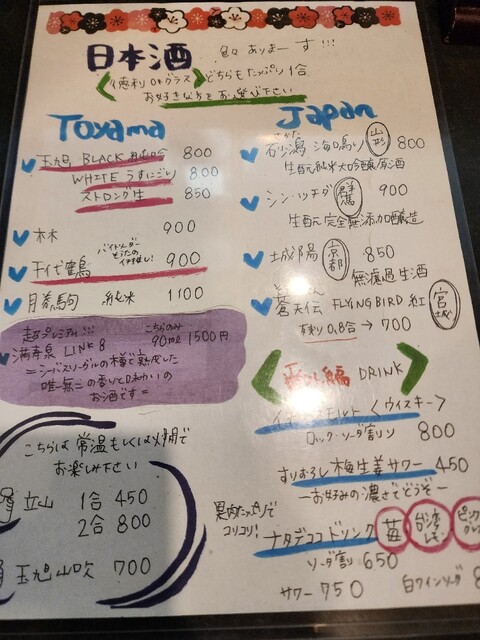 日本酒 色々ありまーす!!!
徳利 or グラス どちらもたっぷり1合
お好きな方をお選び下さい
Toyama
玉旭 BLACK 800
WHITE うすにごり 800
ストロング生 850
林 900
バイトリーダー
イチ推し!
千代鶴 900
勝駒 純米 1100
超プレミアム!!! こちらのみ
満寿泉 LINK 8 90ml 1500円
=シーバスリーガルの樽で熟成した
唯一無二の香りと味わいの
お酒です=
こちらは常温もしくは火燗で
お楽しみ下さい
立山 1合 450
2合 800
玉旭 山吹 700
Japan
さかた
砂潟 海鳴り 山形 800
生酛純米大吟醸原酒
シン・ツチダ 群馬 900
生酛 完全無添加醸造
城陽 京都 850
無濾過生酒
蒼天伝 FLYING BIRD 紅 宮城
残り0.8合→700
DRINK
<ウイスキー>
ロック・ソーダ割り 800
すりおろし梅生姜サワー 450
ーお好みの濃さでどうぞー
果肉たっぷりで
コリコリ!
ナタデココドリンク 苺 台湾レモン ピンクグレ
ソーダ割 650
サワー 750 白ワインソーダ 8